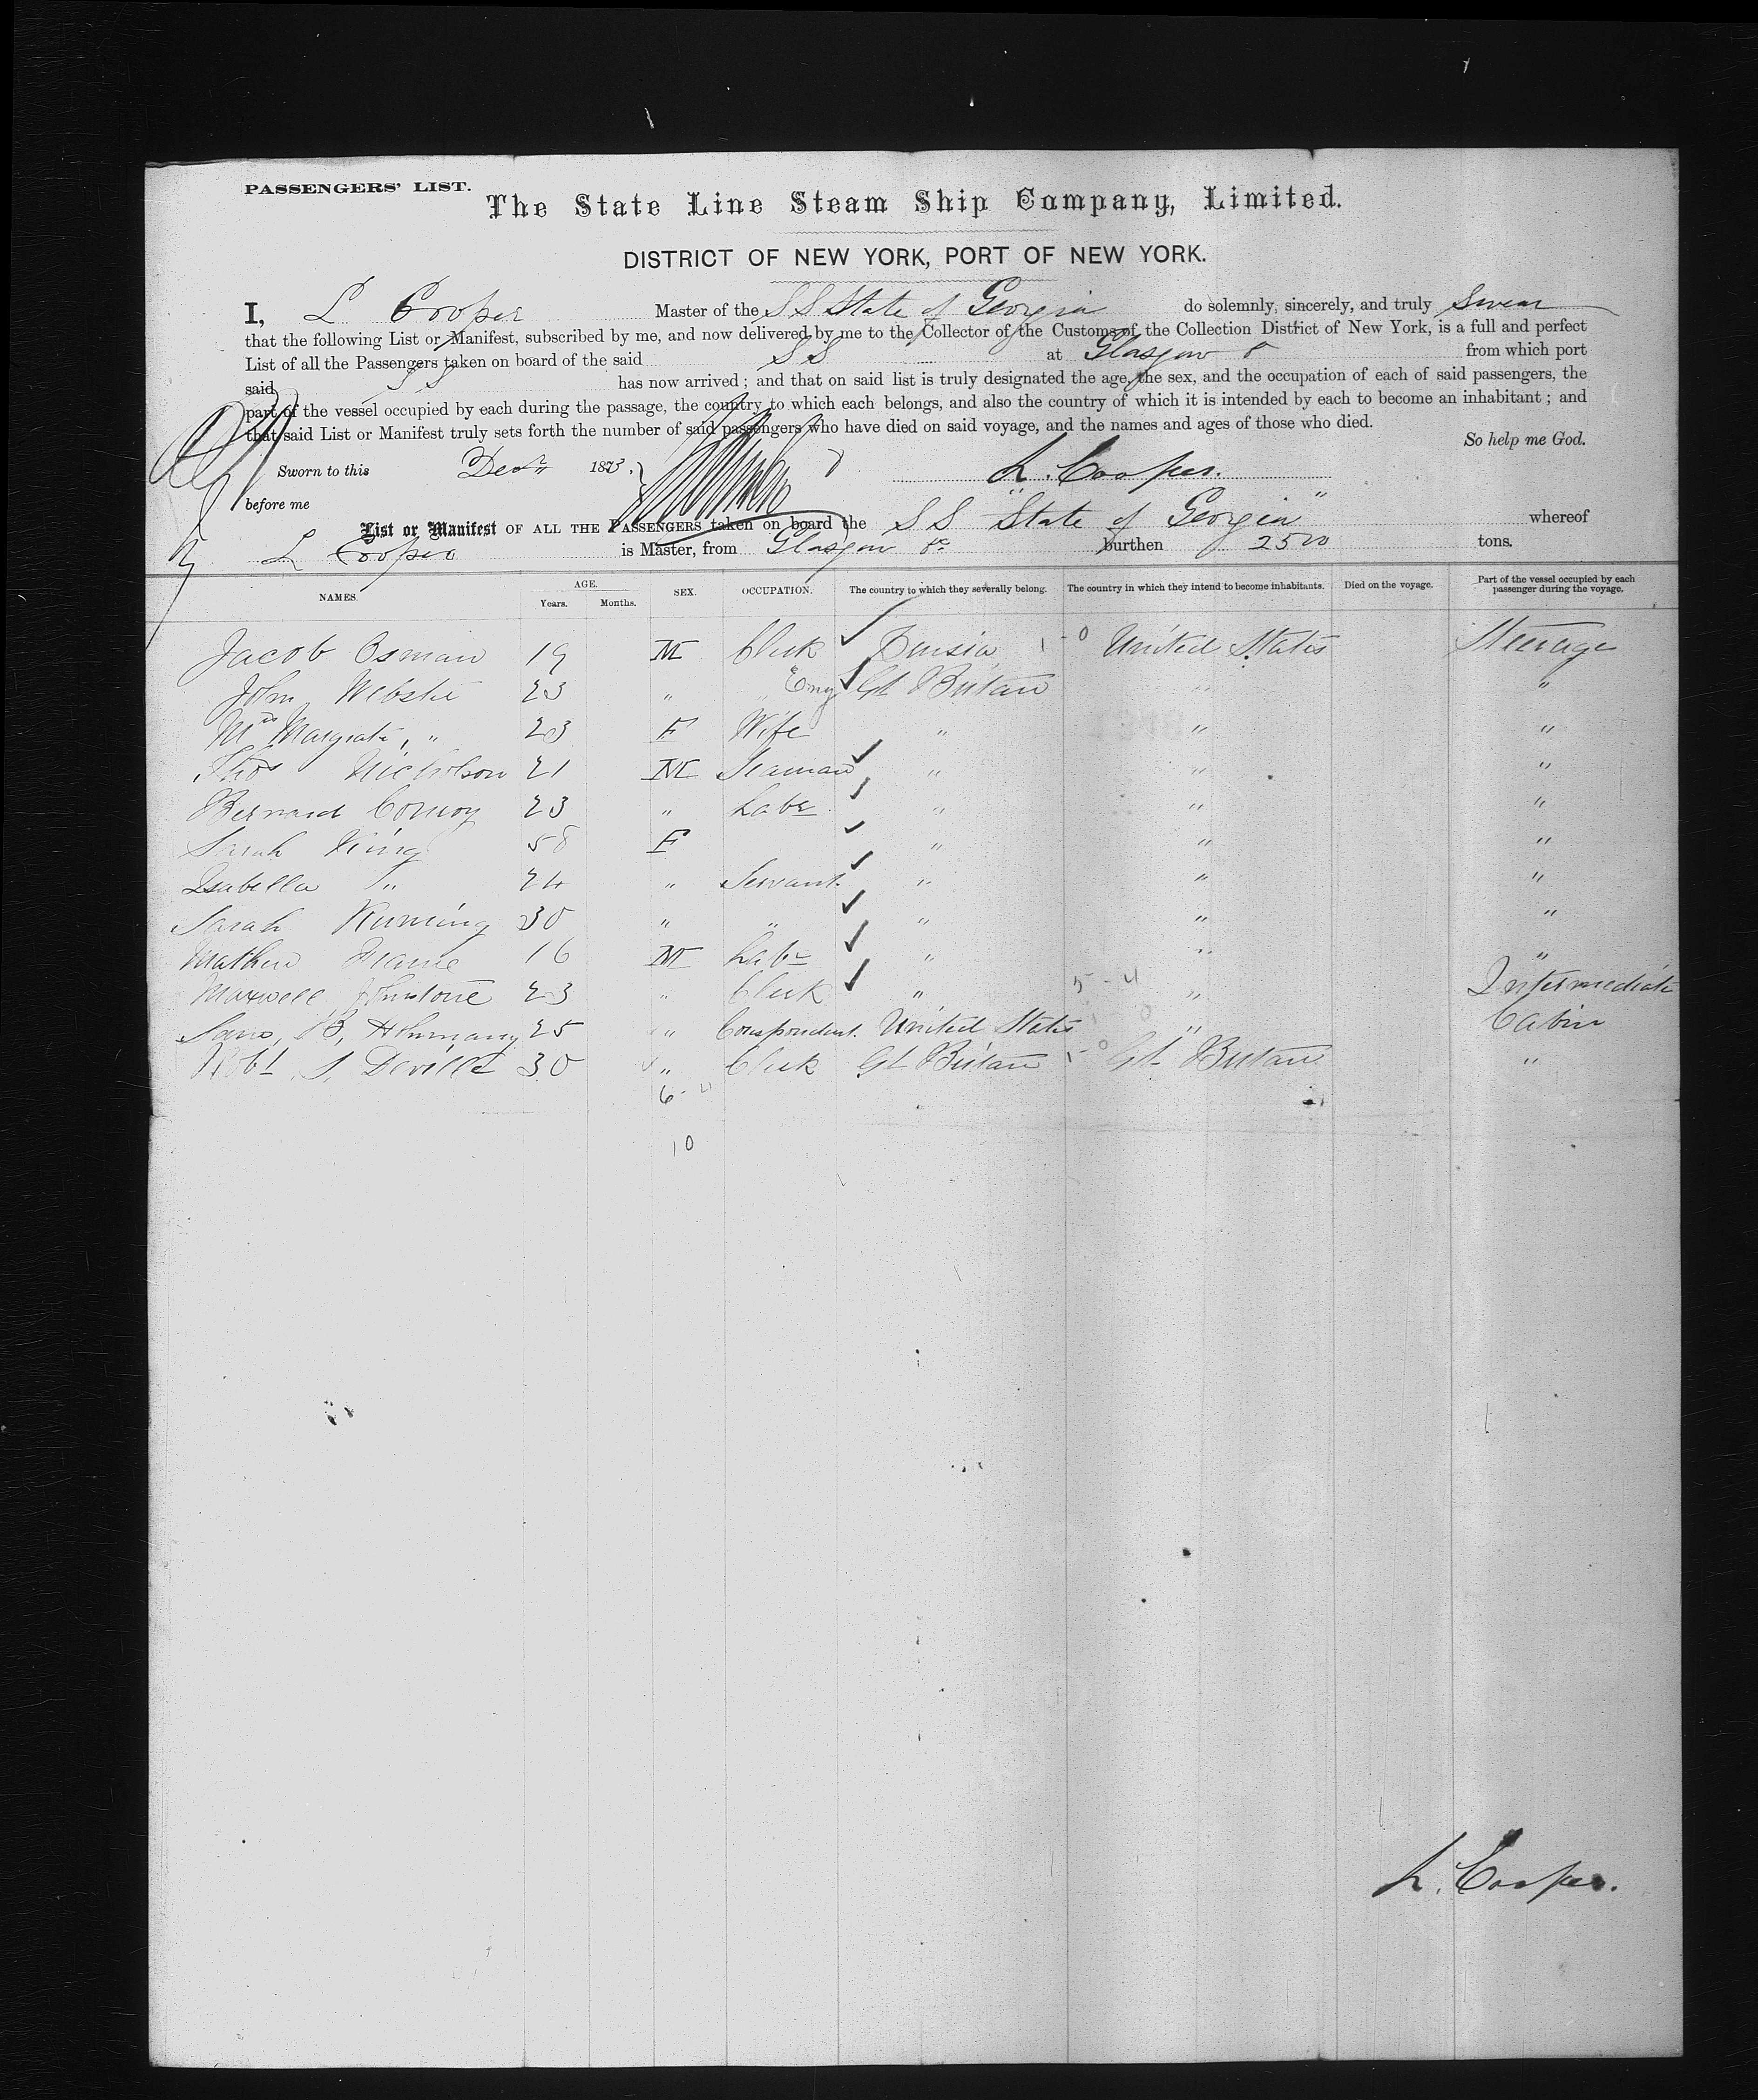 PASSENGERS' LIST.
The State Line Steam Ship Company, Limited.
DISTRICT OF NEW YORK, PORT OF NEW YORK.
I, L Cooper Master of the SS State of Georgia do solemnly, sincerely, and truly Swear
that the following List or Manifest, subscribed by me, and now delivered by me to the Collector of the Customs of the Collection District of New York, is a full and perfect
List of all the Passengers taken on board of the said SS at Glasgow from which port
said SS has now arrived; and that on said list is truly designated the age, the sex, and the occupation of each of said passengers, the
part of the vessel occupied by each during the passage, the country to which each belongs, and also the country of which it is intended by each to become an inhabitant; and
that said List or Manifest truly sets forth the number of said passengers who have died on said voyage, and the names and ages of those who died.
So help me God.
Sworn to this 1873.
L. Cooper.
before me
List or Manifest OF ALL THE PASSENGERS taken on board the SS "State of Georgia" whereof
L Cooper is Master, from Glasgow burthen 2500 tons.
NAMES. AGE. Years. Months. SEX. OCCUPATION. The country to which they severally belong. The country in which they intend to become inhabitants. Died on the voyage. Part of the vessel occupied by each passenger during the voyage.
Jacob Osman 19 M Clerk 1-0 United States Steerage
John Webster 23 " Eng Gt Britain " "
Mrs Margrate, " 23 F Wife " " "
Thos Nicholson 21 M Seaman " " "
Bernard Conroy 23 " Labr " " "
Sarah King 58 F " " "
Isabella " 24 " Servant " " "
Sarah 30 " " " " "
Mathew 16 M Labr " " "
Maxwell Johnstone 23 " Clerk " 5-4 " Intermediate
B, 25 " Correspondent. United States " Cabin
Robt S. 30 " Clerk Gt Britain 1-0 Gt Britain "
6-4
10
L. Cooper.